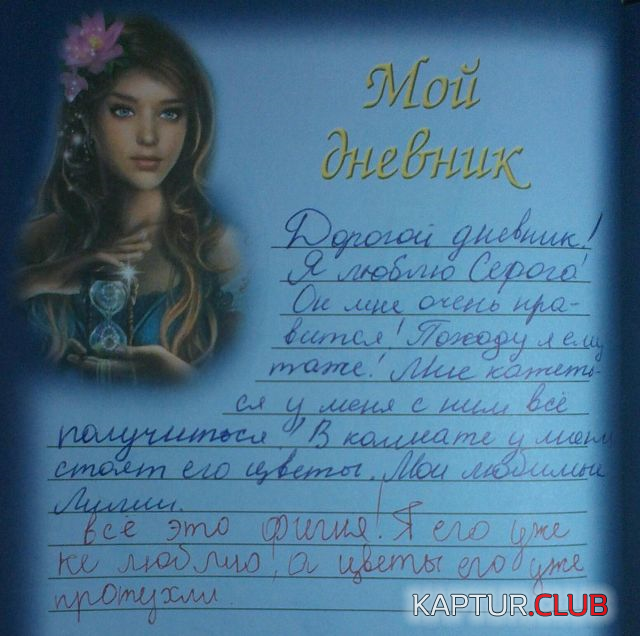 Мой
дневник
Дорогой дневник!
Я люблю Серого!
Он мне очень нра-
вится! Походу я ему
таже! Мне кажеть-
ся у меня с ним всё
получиться! В комнате у меня
стоят его цветы. Мои любимые
Лилии.
всё это фигня! Я его уже
не люблю, а цветы его уже
протухли.
KAPTUR.CLUB